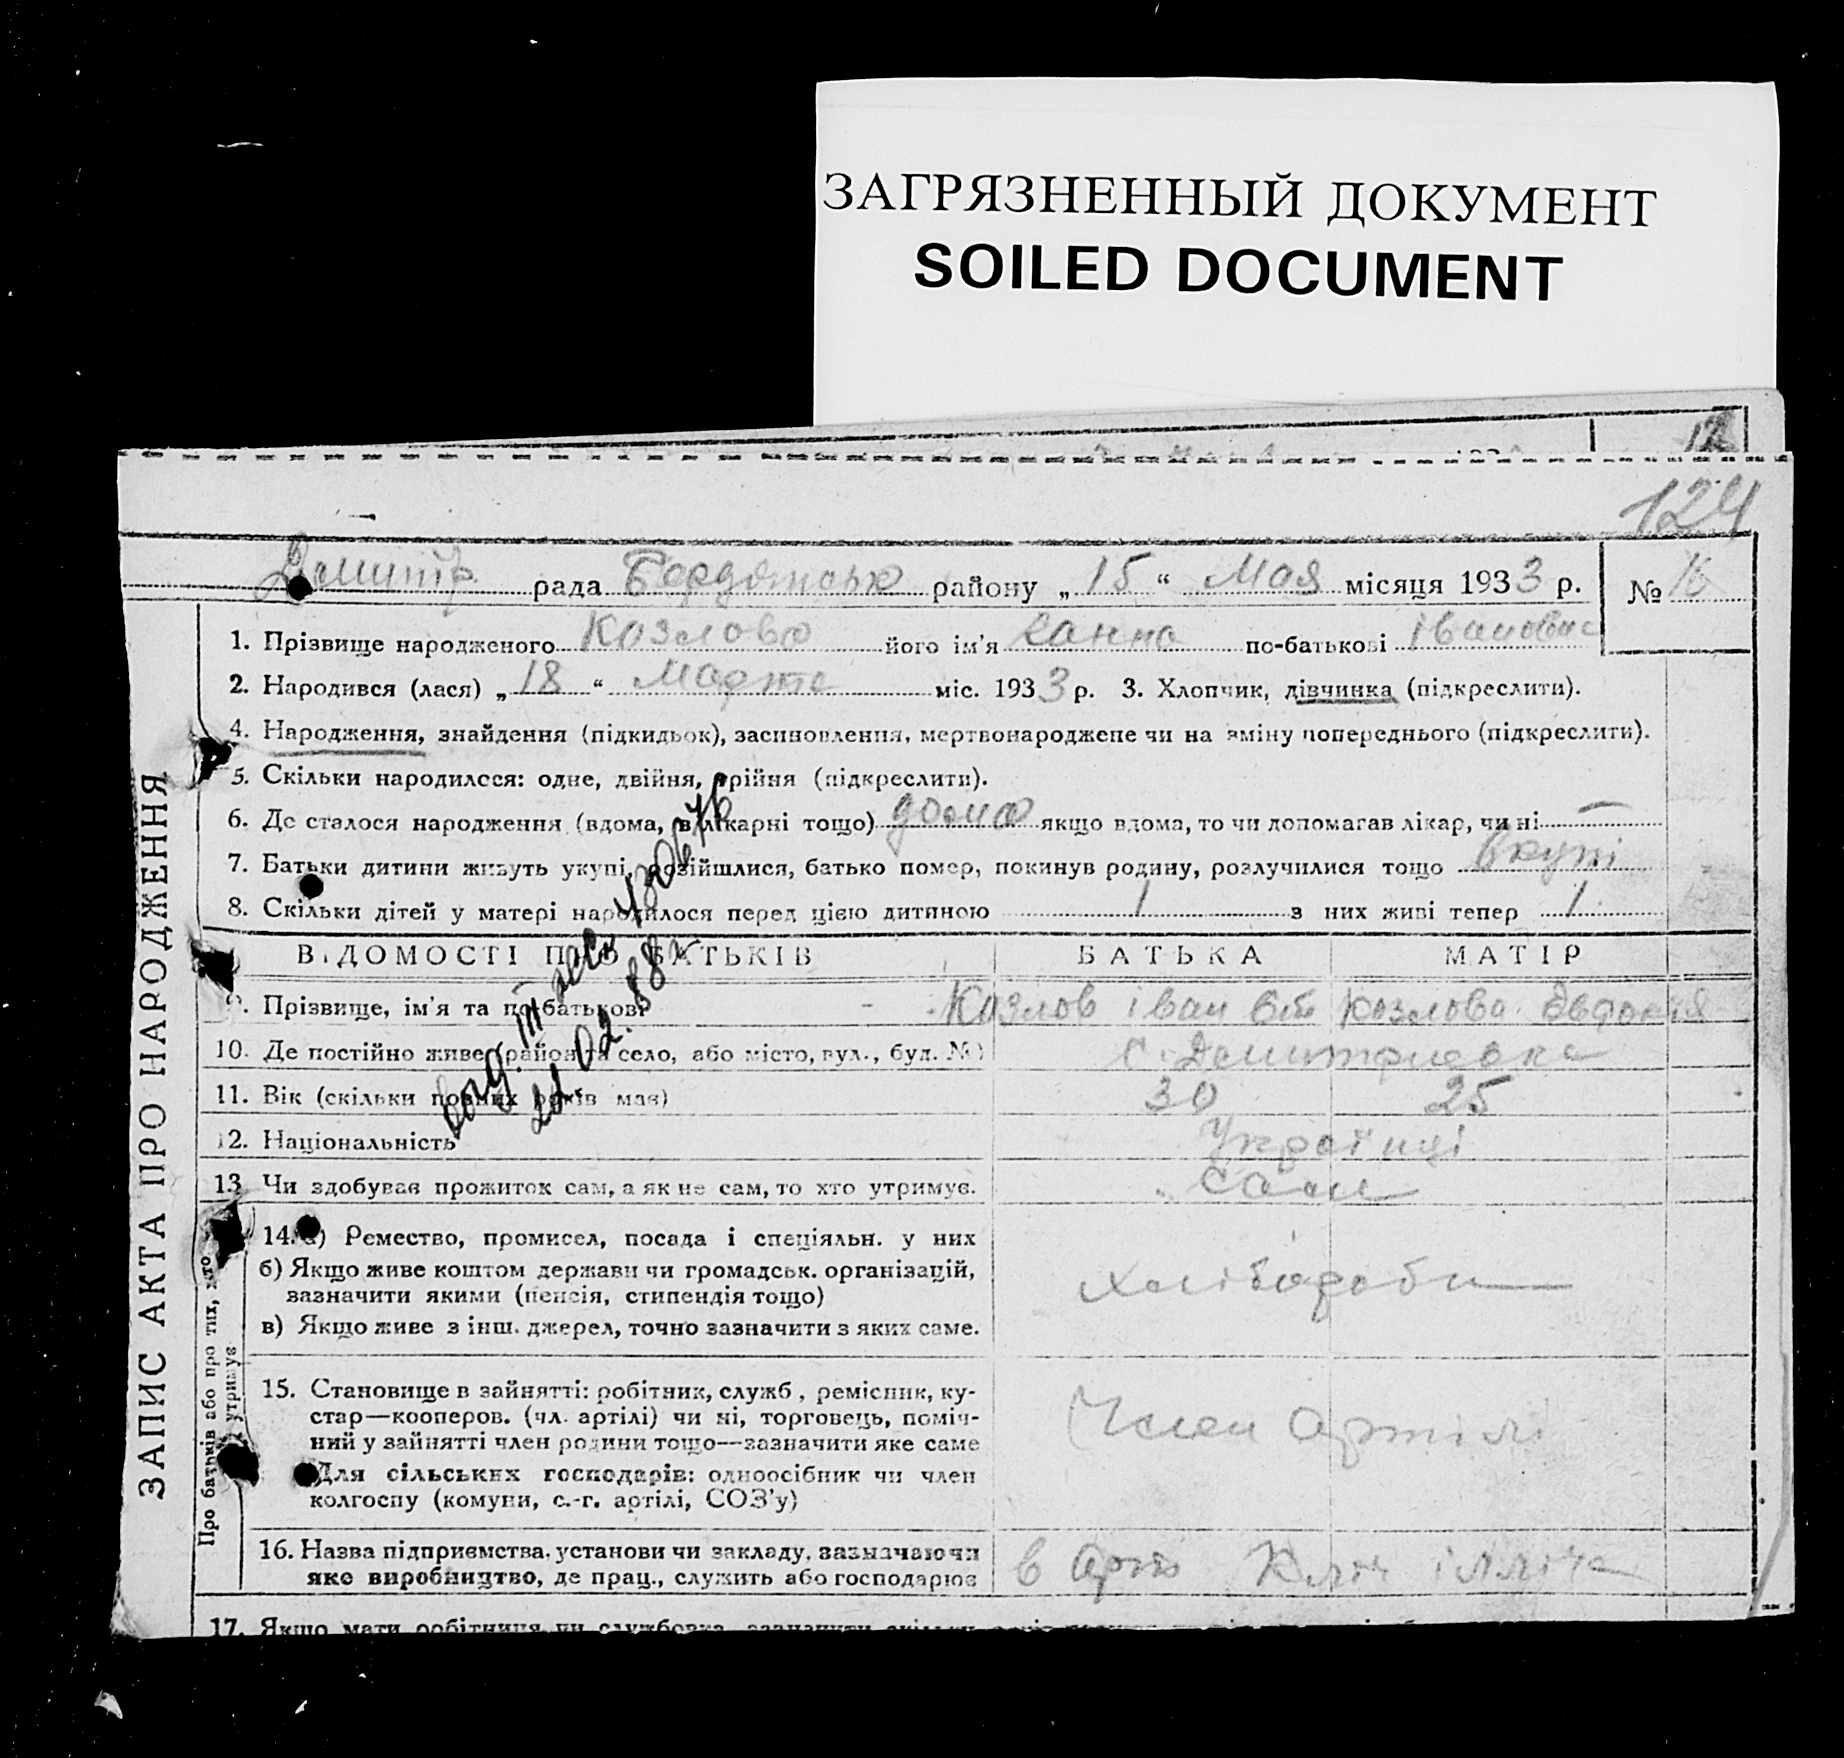 ЗАГРЯЗНЕННЫЙ ДОКУМЕНТ
SOILED DOCUMENT
12
124
Дмитр рада Бердянськ району „ 15 “ Мая місяця 1933 р. № 16
ЗАПИС АКТА ПРО НАРОДЖЕННЯ
1. Прізвище народженого Козлова його ім'я Ганна по-батькові Івановна
2. Народився (лася) „ 18 “ Марта міс. 1933 р. 3. Хлопчик, дівчинка (підкреслити).
4. Народження, знайдення (підкидьок), засиновлення, мертвонароджене чи на зміну попереднього (підкреслити).
5. Скільки народилося: одне, двійня, трійня (підкреслити).
6. Де сталося народження (вдома, в лікарні тощо) дома якщо вдома, то чи допомагав лікар, чи ні —
7. Батьки дитини живуть укупі, розійшлися, батько помер, покинув родину, розлучилися тощо вкупі
8. Скільки дітей у матері народилося перед цією дитиною 1 з них живі тепер 1
ВІДОМОСТІ ПРО БАТЬКІВ БАТЬКА МАТІР
9. Прізвище, ім'я та по-батькові Козлов Іван Козлова Евдокия
10. Де постійно живе (район та село, або місто, вул., буд. №) с. Дмитриевка
11. Вік (скільки повних років має) 30 25
12. Національність Українці
13. Чи здобував прожиток сам, а як не сам, то хто утримує. сами
Про батьків або про тих, хто утримує
14. а) Ремество, промисел, посада і спеціяльн. у них
б) Якщо живе коштом держави чи громадськ. організацій,
зазначити якими (пенсія, стипендія тощо) хлібороби
в) Якщо живе з інш. джерел, точно зазначити з яких саме.
15. Становище в зайнятті: робітник, служб., ремісник, ку-
стар—кооперов. (чл. артілі) чи ні, торговець, поміч- Член артілі
ний у зайнятті член родини тощо—зазначити яке саме
Для сільських господарів: одноосібник чи член
колгоспу (комуни, с.-г. артілі, СОЗ'у)
16. Назва підприємства, установи чи закладу, зазначаючи в Арт Клич Ілліча
яке виробництво, де прац., служить або господарює
17. Якщо мати робітниця чи службовка, зазначити